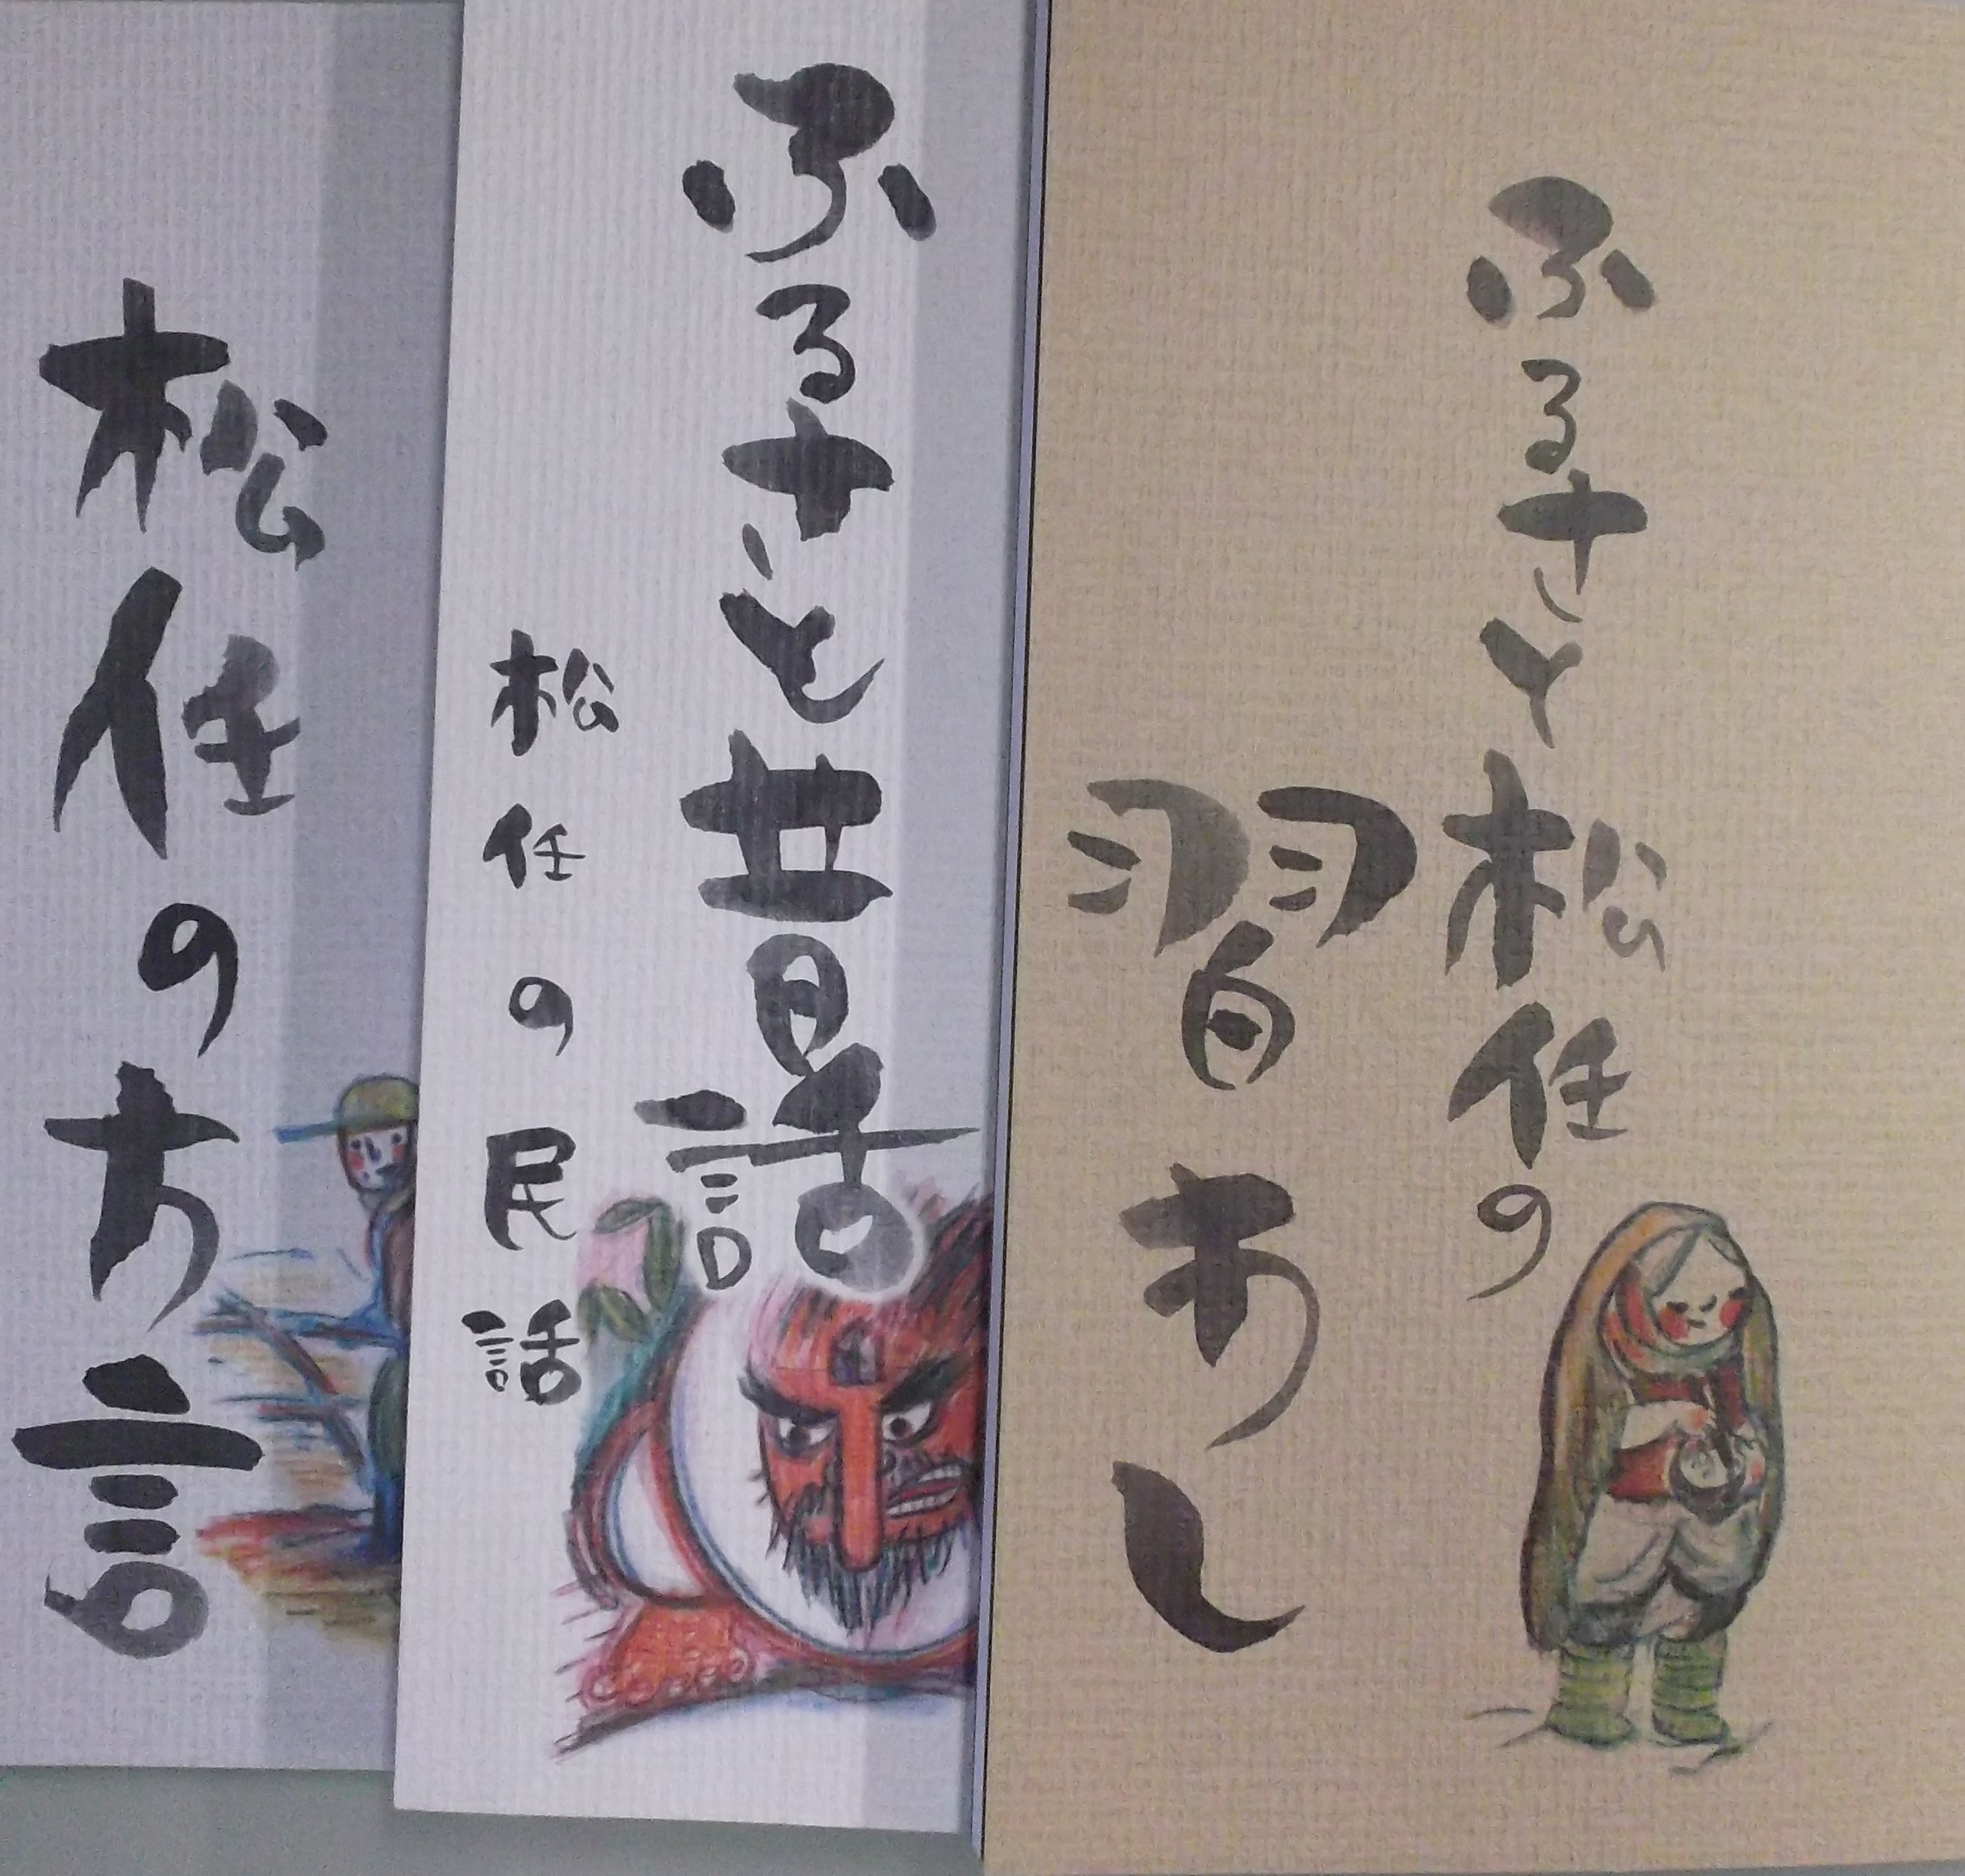 ふるさと松任の
習わし
ふるさと昔話
松任の民話
松任の方言